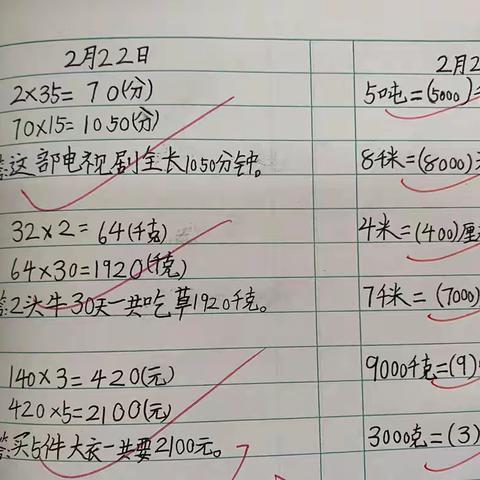 2月22日
2×35=70(分)
70×15=1050(分)
答:这部电视剧全长1050分钟。
32×2=64(千克)
64×30=1920(千克)
答:2头牛30天一共吃草1920千克。
140×3=420(元)
420×5=2100(元)
答:买5件大衣一共要2100元。
2月2
5吨=(5000)
8千米=(8000)
4米=(400)厘
7千米=(7000)
9000千克=(9)
3000克=(3)